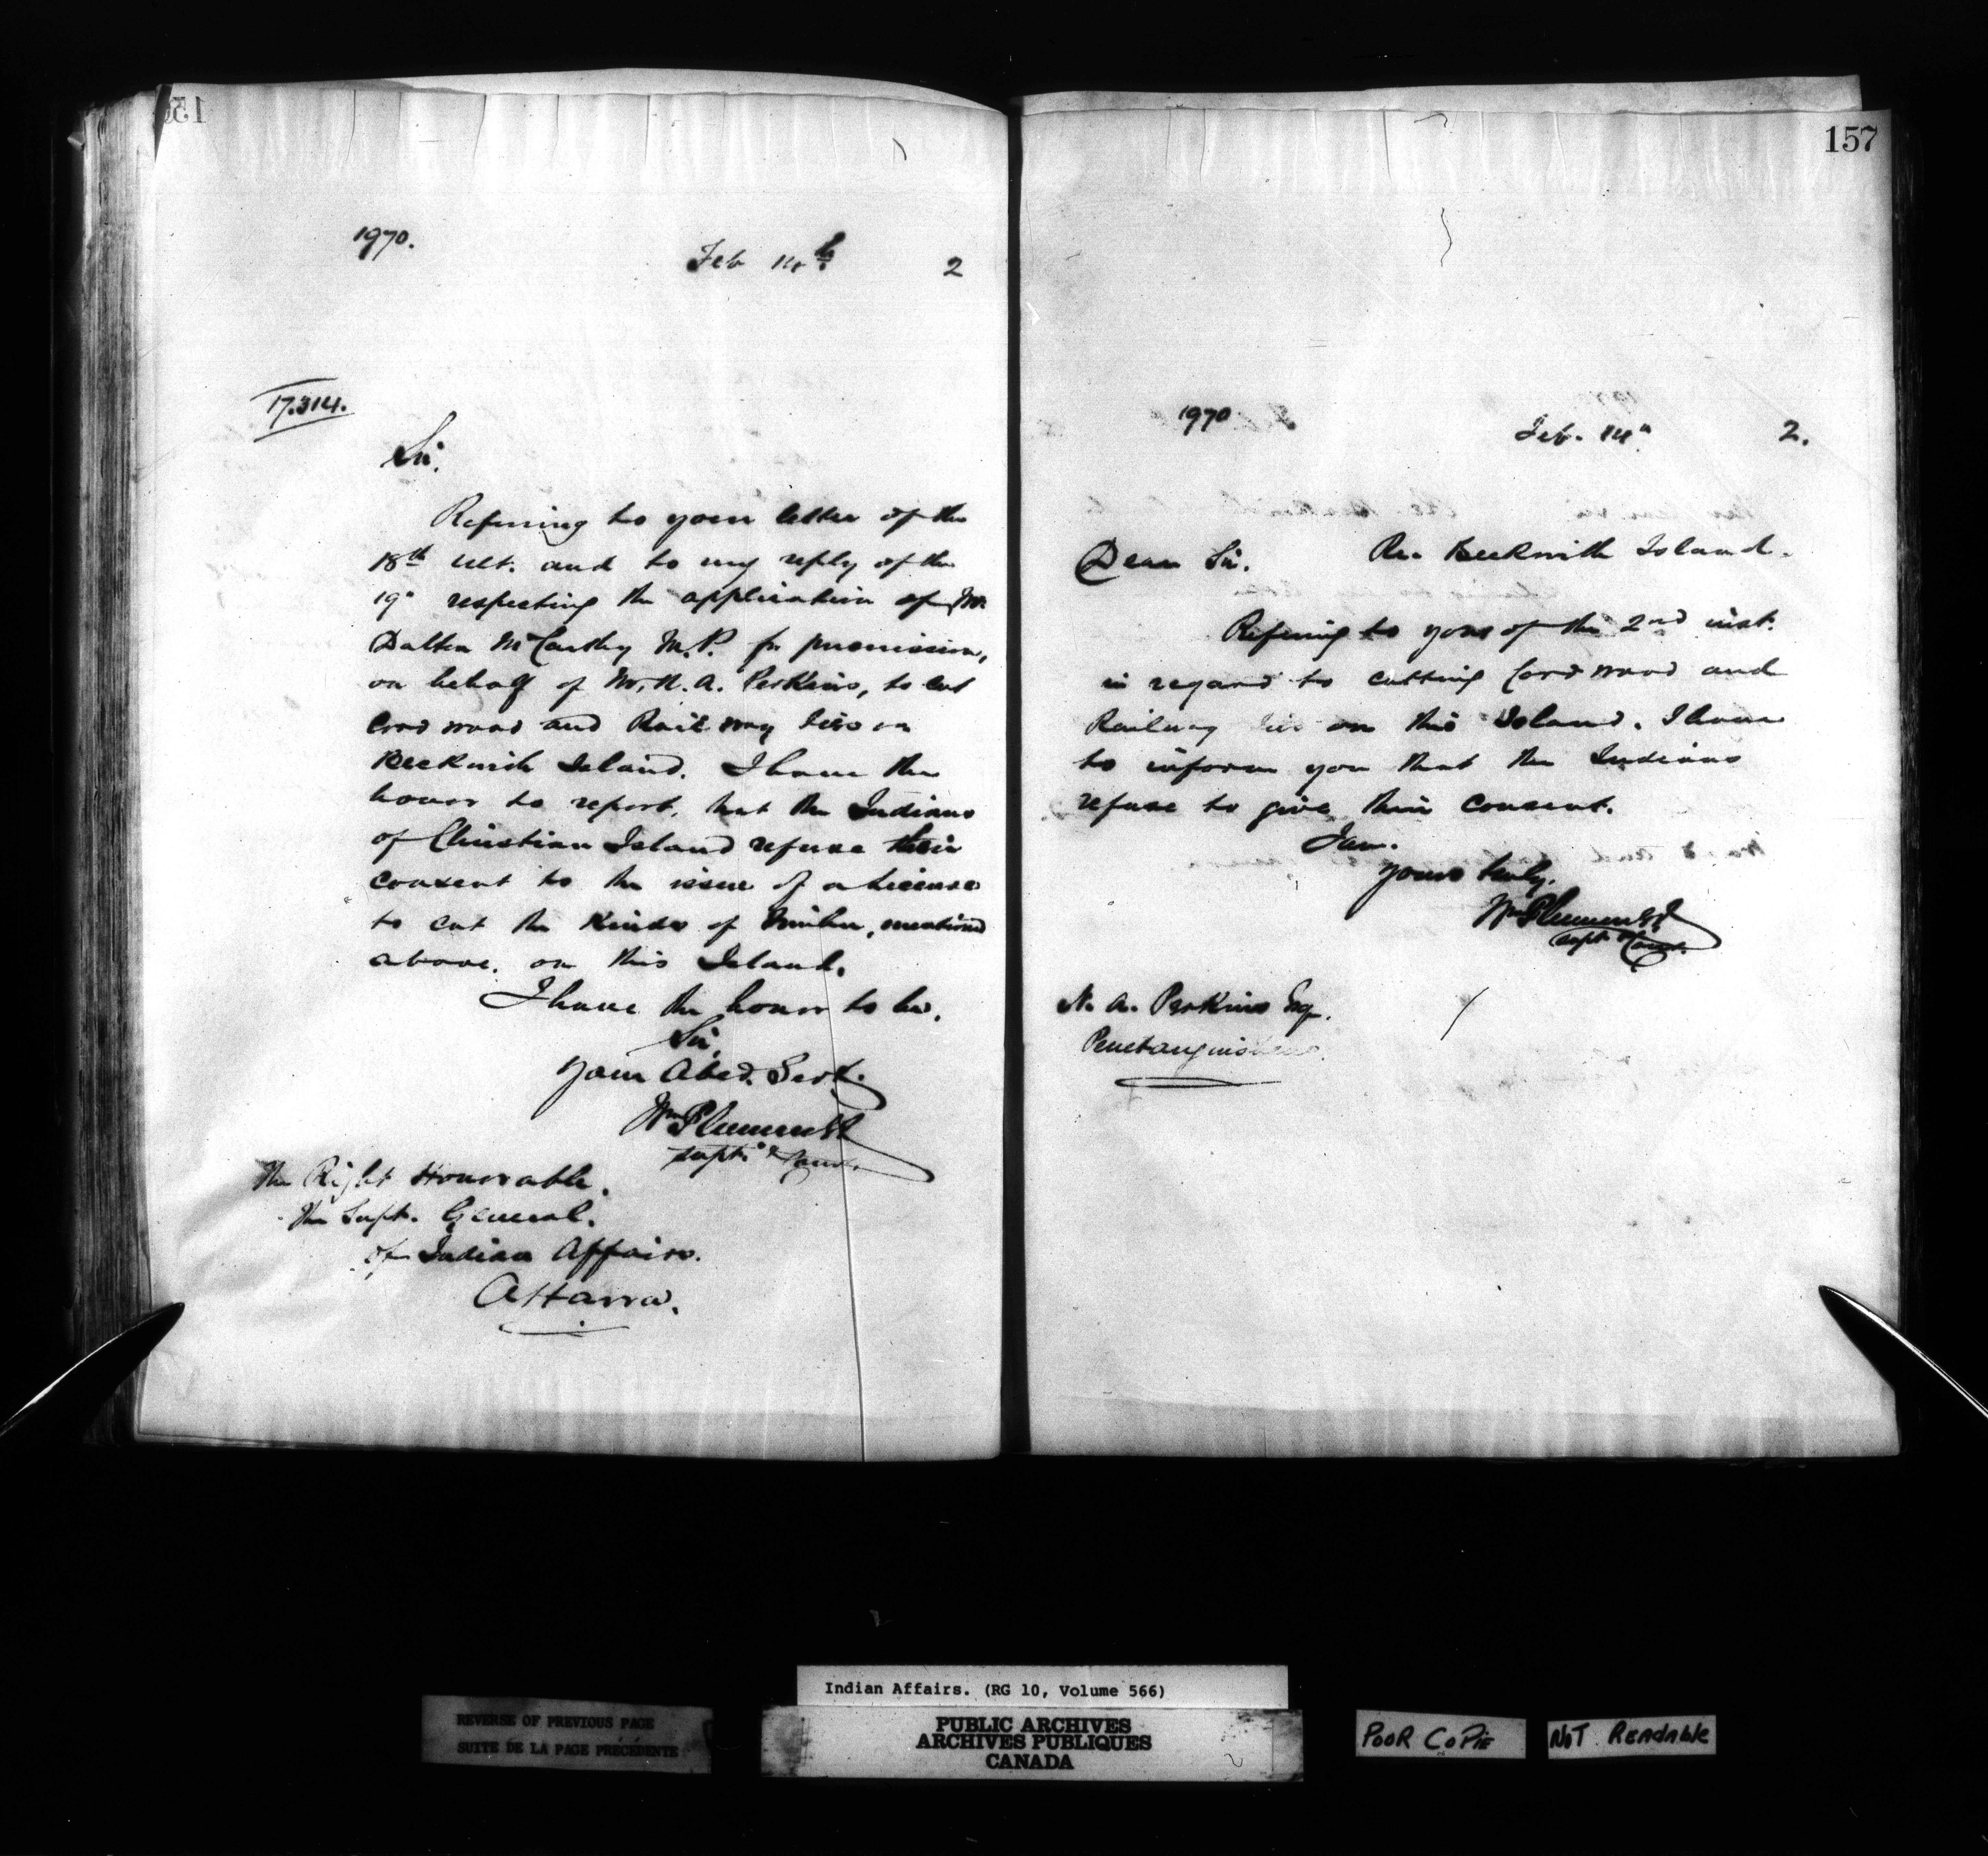 1970.
Feb 14th 2
17.314.
Sir.
Referring to your letter of the
18th ult. and to my reply of the
19" respecting the application of Mr.
Dalton McCarthy M.P. for permission,
on behalf of Mr. N. A. Perkins, to cut
Cord wood and Railway ties on
Beckwith Island. I have the
honor to report, that the Indians
of Christian Island refuse their
consent to the issue of a license
to cut the kinds of timber, mentioned
above, on this Island.
I have the honor to be,
Sir,
Your Obed. Servt.
Wm Plummer
Supt. & Comr.
The Right Honorable,
The Supt. General.
of Indian Affairs.
Ottawa.
157
1970
Feb. 14" 2.
Re. Beckwith Island.
Dear Sir.
Refering to yours of the 2nd inst.
in regard to cutting Cord wood and
Railway ties on this Island. I have
to inform you that the Indians
refuse to give their consent.
I am.
Yours truly,
Wm Plummer
Supt & Comr.
N. A. Perkins Esq.
Penetanguishene.
Indian Affairs. (RG 10, Volume 566)
REVERSE OF PREVIOUS PAGE
SUITE DE LA PAGE PRÉCÉDENTE
PUBLIC ARCHIVES
ARCHIVES PUBLIQUES
CANADA
POOR COPIE
NOT READABLE